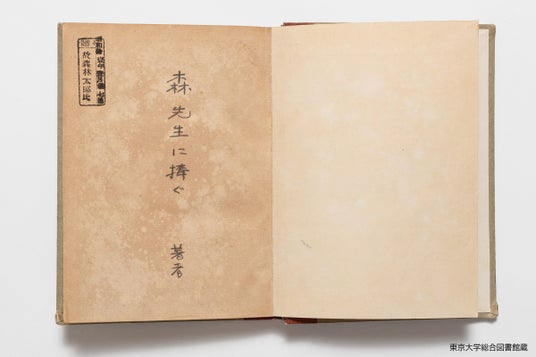 森先生に捧ぐ
著者
故森林太郎氏
東京大学総合図書館蔵